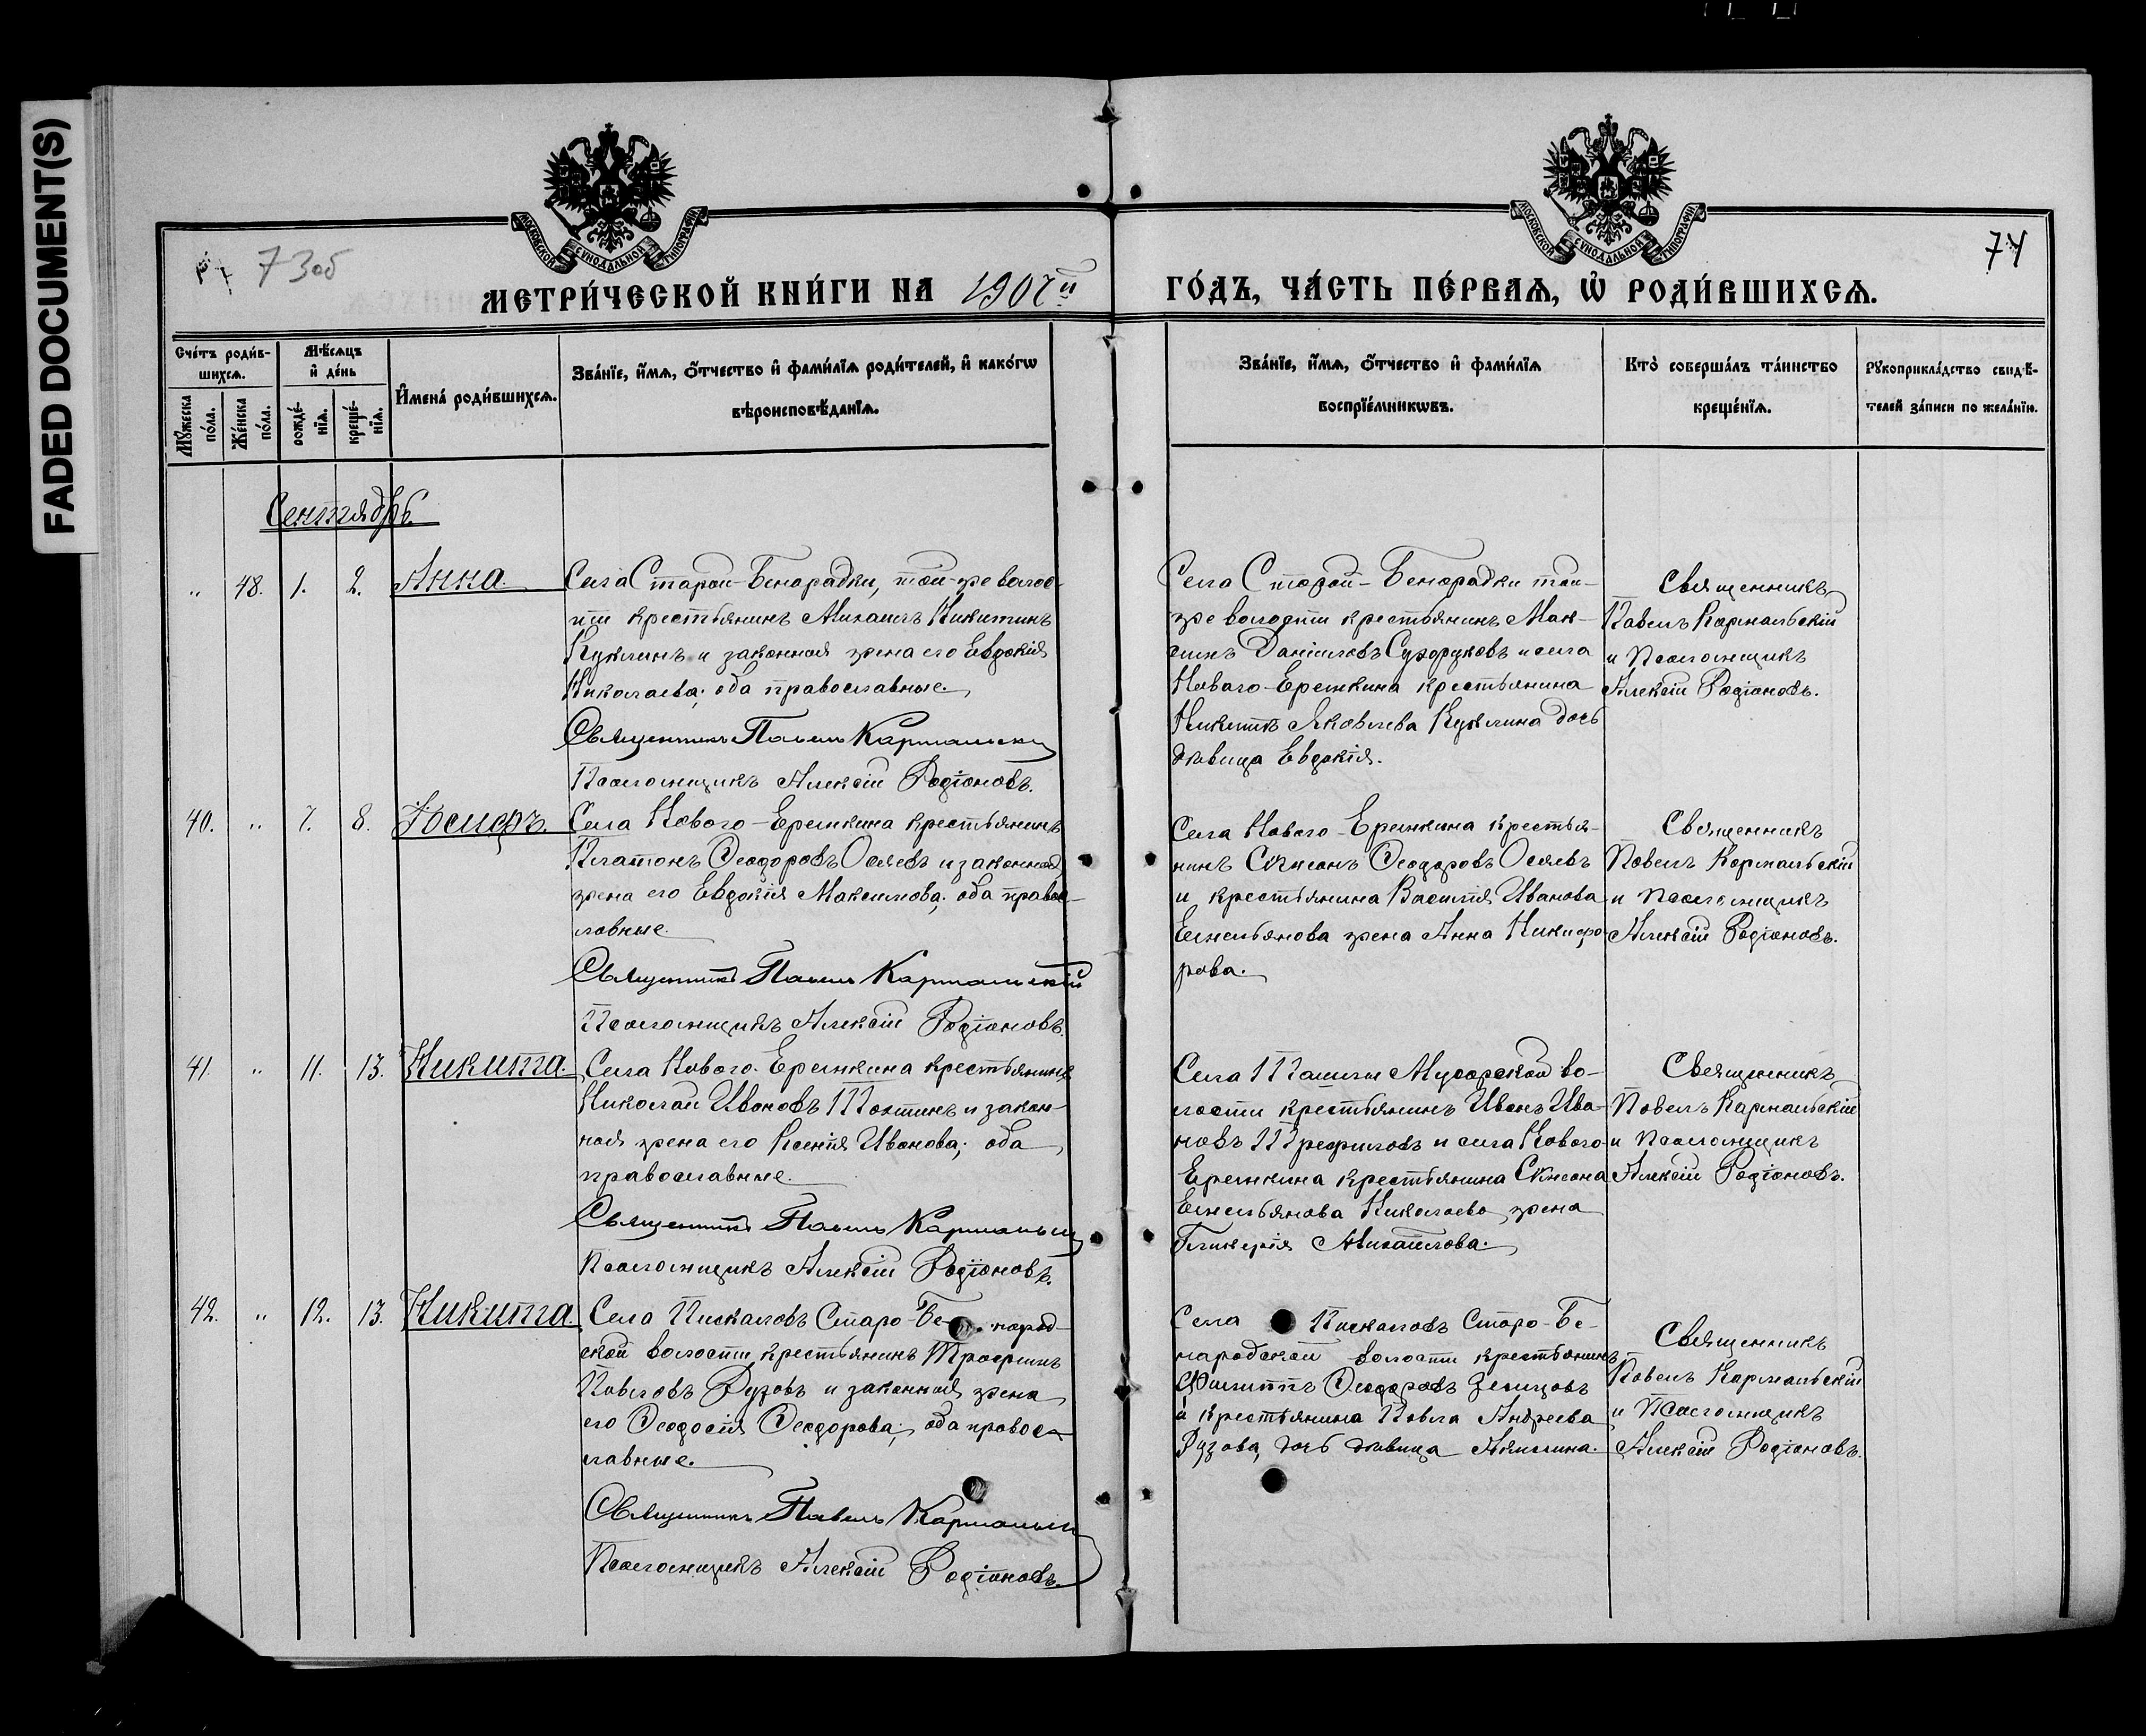 FADED DOCUMENT(S)
73об
74
МОСКОВСКОЙ СУНОДАЛЬНОЙ ТИПОГРАФІИ
МОСКОВСКОЙ СУНОДАЛЬНОЙ ТИПОГРАФІИ
МЕТРИ́ЧЕСКОЙ КНИ́ГИ НА
ГО́ДЪ, ЧА́СТЬ ПЕ́РВАѦ, Ѡ҆ РОДИ́ВШИХСѦ.
Сче́тъ роди́в-
шихсѧ.
Мꙋ́жеска по́ла.
Же́нска по́ла.
Мѣ́сѧцъ
и҆ де́нь
рожде́-
нїѧ.
креще́-
нїѧ.
И҆мена̀ роди́вшихсѧ.
Зва́нїе, и҆́мѧ, ѻ҆́тчество и҆ фами́лїѧ роди́телей, и҆ како́гѡ
вѣроисповѣ́данїѧ.
Зва́нїе, и҆́мѧ, ѻ҆́тчество и҆ фами́лїѧ
воспрїе́мникѡвъ.
Кто̀ соверша́лъ та́инство
креще́нїѧ.
Рꙋкоприкла́дство свидѣ́-
телей за́писи по жела́нїю.
Сентябрь.
„ 48. 1. 2. Анна.
Села Старой-Бинарадки, той-же волос-
ти крестьянинъ Михаилъ Никитинъ
и законная жена его Евдокія
Николаева; оба православные.
Священникъ Павелъ Кармальскій
Псаломщикъ Алексій Родіоновъ.
Села Старой-Бинарадки той-
же волости крестьянинъ Мак-
симъ Даніиловъ Сухоруковъ и села
Новаго-Еремкина крестьянина
Никиты Яковлева дочь
дѣвица Евдокія.
Священникъ
Павелъ Кармальскій
и Псаломщикъ
Алексій Родіоновъ.
40. „ 7. 8. Іосифъ.
Села Новаго-Еремкина крестьянинъ
Платонъ Ѳеодоровъ Осяевъ и законная
жена его Евдокія Максимова; оба право-
славные.
Священникъ Павелъ Кармальскій
Псаломщикъ Алексій Родіоновъ.
Села Новаго-Еремкина крестья-
нинъ Сѵмеонъ Ѳеодоровъ Осяевъ
и крестьянина Василія Иванова
Емельянова жена Анна Никифо-
рова.
Священникъ
Павелъ Кармальскій
и Псаломщикъ
Алексій Родіоновъ.
41. „ 11. 13. Никита.
Села Новаго-Еремкина крестьянинъ
Николай Ивановъ и закон-
ная жена его Ксенія Иванова; оба
православные.
Священникъ Павелъ Кармальскій
Псаломщикъ Алексій Родіоновъ.
Села Ташлы Мусорской во-
лости крестьянинъ Иванъ Ива-
новъ Трефиловъ и села Новаго-
Еремкина крестьянина Сѵмеона
Емельянова Николаева жена
Гликерія Михайлова.
Священникъ
Павелъ Кармальскій
и Псаломщикъ
Алексій Родіоновъ.
42. „ 12. 13. Никита.
Села Пискаловъ Старо-Бе-нарад-
ской волости крестьянинъ Трофимъ
Павловъ Рузовъ и законная жена
его Ѳеодосія Ѳеодорова; оба правос-
лавные.
Священникъ Павелъ Кармальскій
Псаломщикъ Алексій Родіоновъ.
Села Пискаловъ Старо-Бе-
нарадской волости крестьянинъ
Филиппъ Ѳеодоровъ
и крестьянина Павла Андреева
Рузова, дочь дѣвица
Священникъ
Павелъ Кармальскій
и Псаломщикъ
Алексій Родіоновъ.